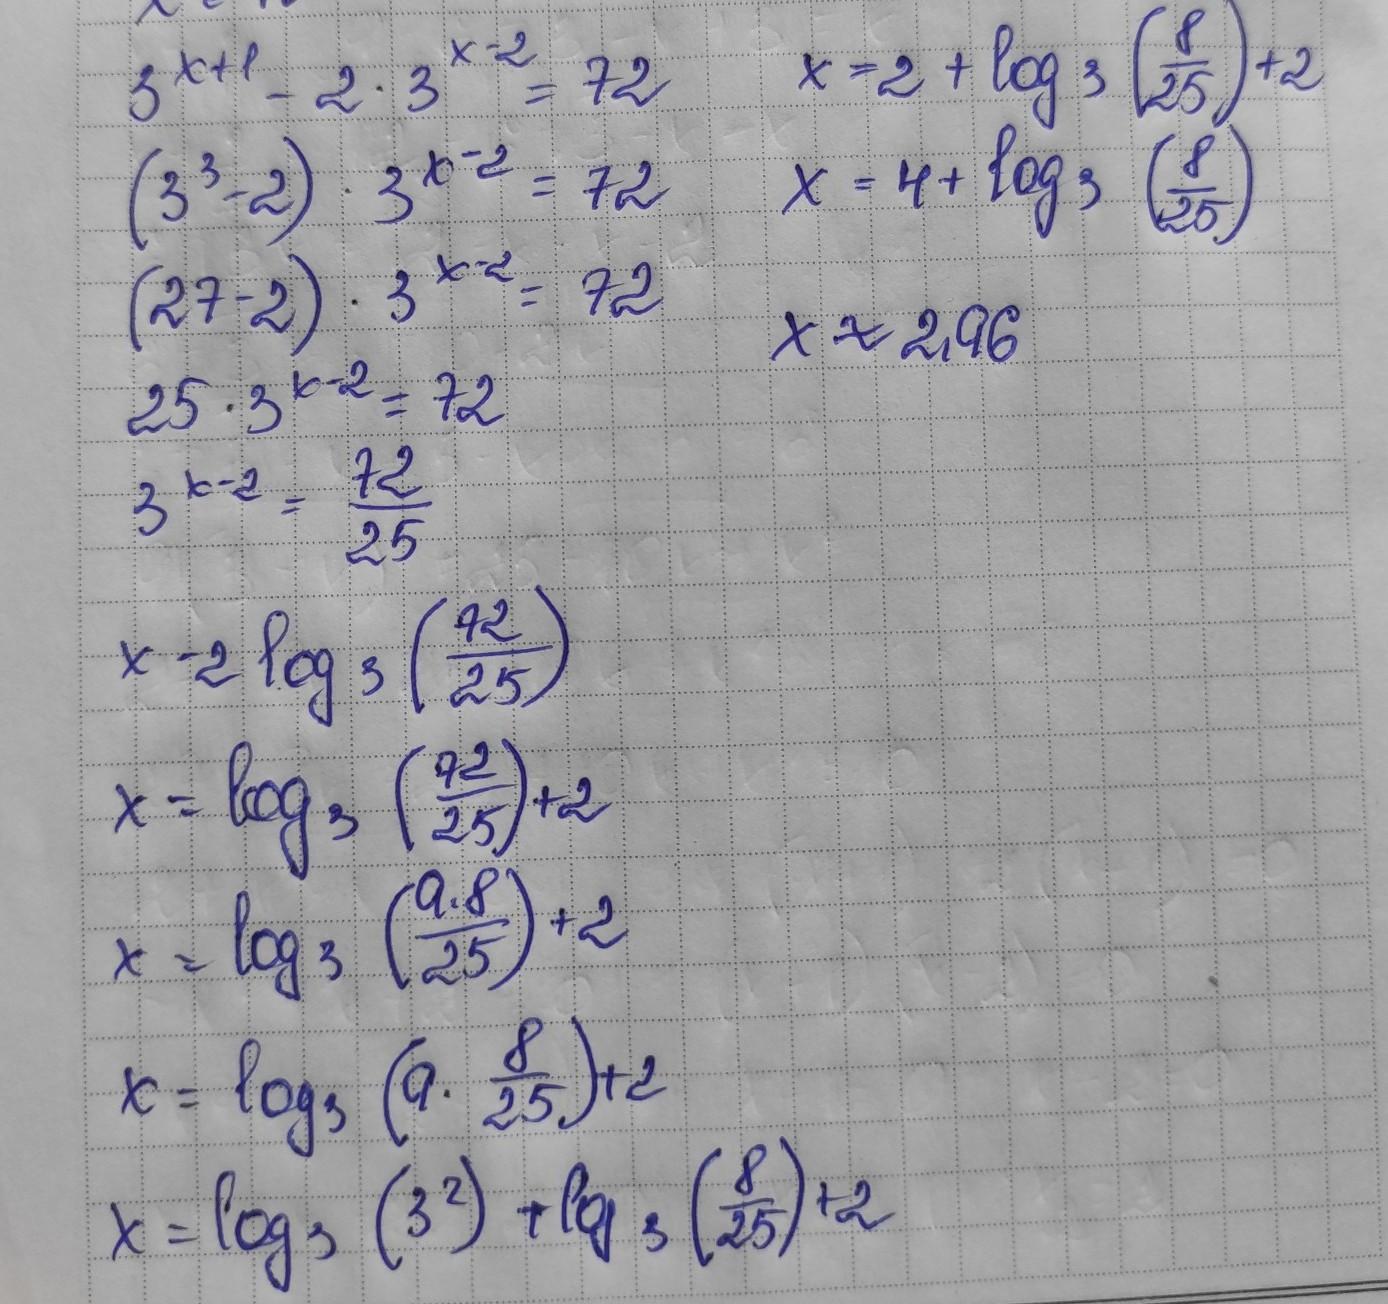 3^{x+1} - 2 · 3^{x-2} = 72
(3^3 - 2) · 3^{x-2} = 72
(27 - 2) · 3^{x-2} = 72
25 · 3^{x-2} = 72
3^{x-2} = 72/25
x - 2 log_3 (72/25)
x = log_3 (72/25) + 2
x = log_3 (9·8/25) + 2
x = log_3 (9 · 8/25) + 2
x = log_3 (3^2) + log_3 (8/25) + 2
x = 2 + log_3 (8/25) + 2
x = 4 + log_3 (8/25)
x ≈ 2,96